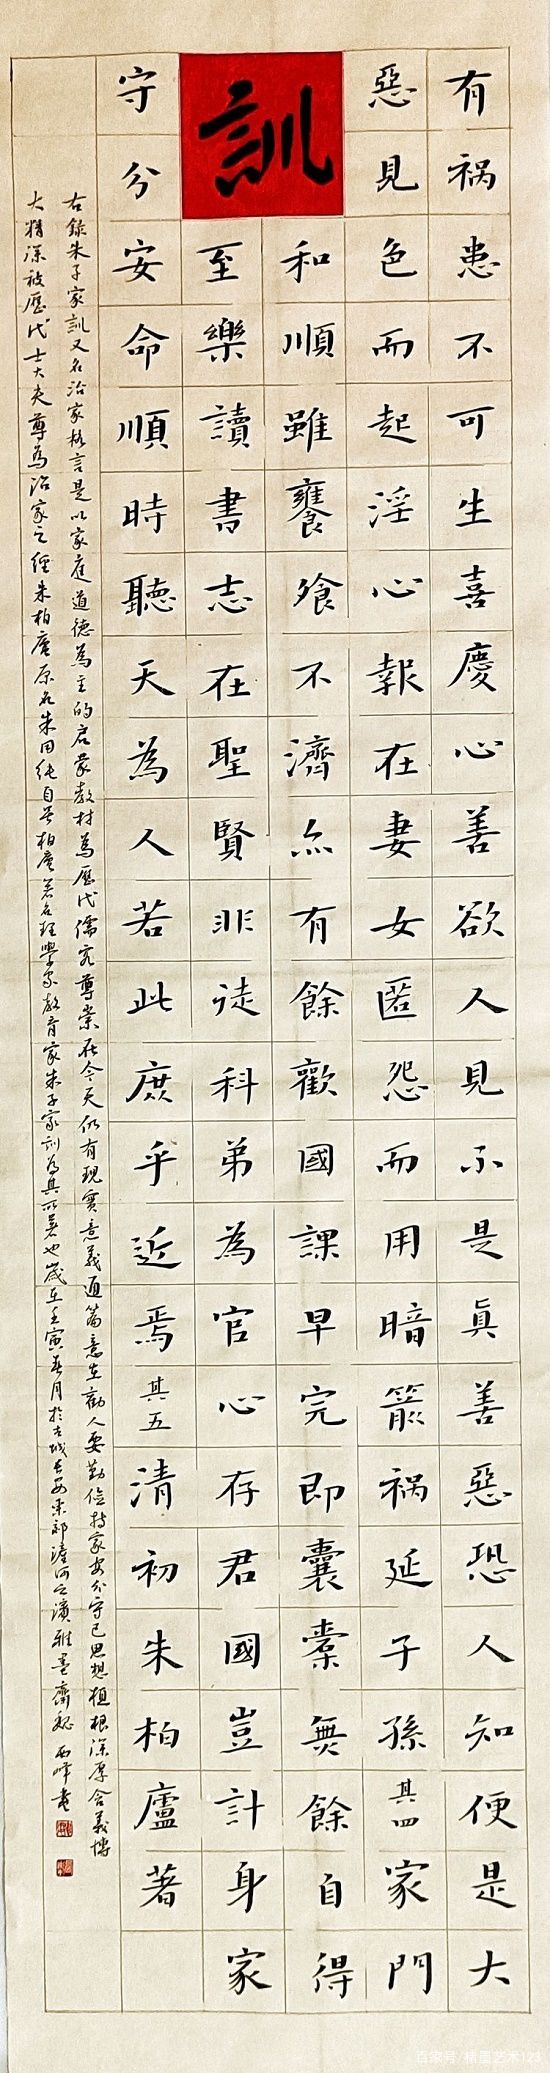 有祸患不可生喜慶心善欲人見不是真善惡恐人知便是大
惡見色而起淫心報在妻女匿怨而用暗箭祸延子孫其四家門
和順雖饔飧不濟亦有餘歡國課早完即囊橐無餘自得
訓
至樂讀書志在聖賢非徒科弟為官心存君國豈計身家
守分安命順時聽天為人若此庶乎近焉其五清初朱柏廬著
右錄朱子家訓又名治家格言是以家庭道德為主的启蒙教材為歷代儒家尊崇在今天仍有現實意義通篇意在勸人要勤儉持家安分守己思想植根深厚含義博
大精深被歷代士大夫尊為治家之經朱柏廬原名朱用純自号柏廬著名理學家教育家朱子家訓為其所著也歲在壬寅春月於古城長安東郊滻河之濱雅墨齋魏西峰書
百家号/楠墨艺术123